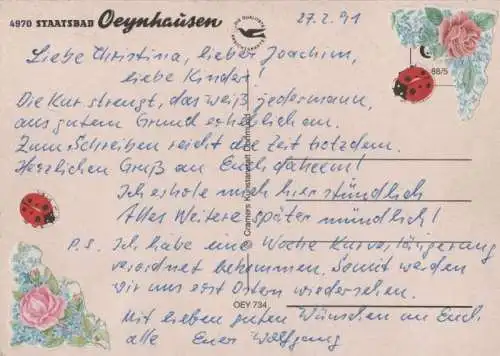 4970 STAATSBAD Oeynhausen
27.2.91
Liebe Christina, lieber Joachim,
liebe Kinder!
88/5
Die Kur strengt, das weiß jedermann,
aus gutem Grund erheblich an.
Zum Schreiben reicht die Zeit trotzdem.
Herzlichen Gruß an Euch daheim!
Ich erhole mich hier stündlich
Alles Weitere später mündlich!
P.S. Ich habe eine Woche Kurverlängerung
verordnet bekommen. Somit werden
wir uns erst Ostern wiedersehen.
Mit lieben guten Wünschen an Euch
alle Euer Wolfgang
Cramers Kunstanstalt Dortmund
OEY 734